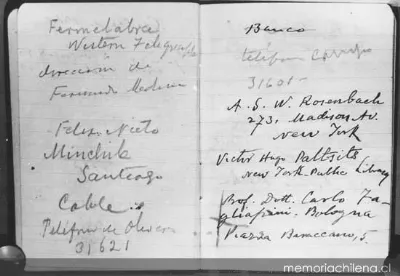 Western Telegraph
dirección de
Fernando Medina
Felix Nieto
Minchik
Santiago
Cable
de
31621
Banco
31601-
A. S. W. Rosenbach
273, Madison Av.
New York
Victor Hugo Paltsits
New York Public Library
Prof. Dott. Carlo Fa-
Bologna
Piazza Baraccano, 5.
memoriachilena.cl